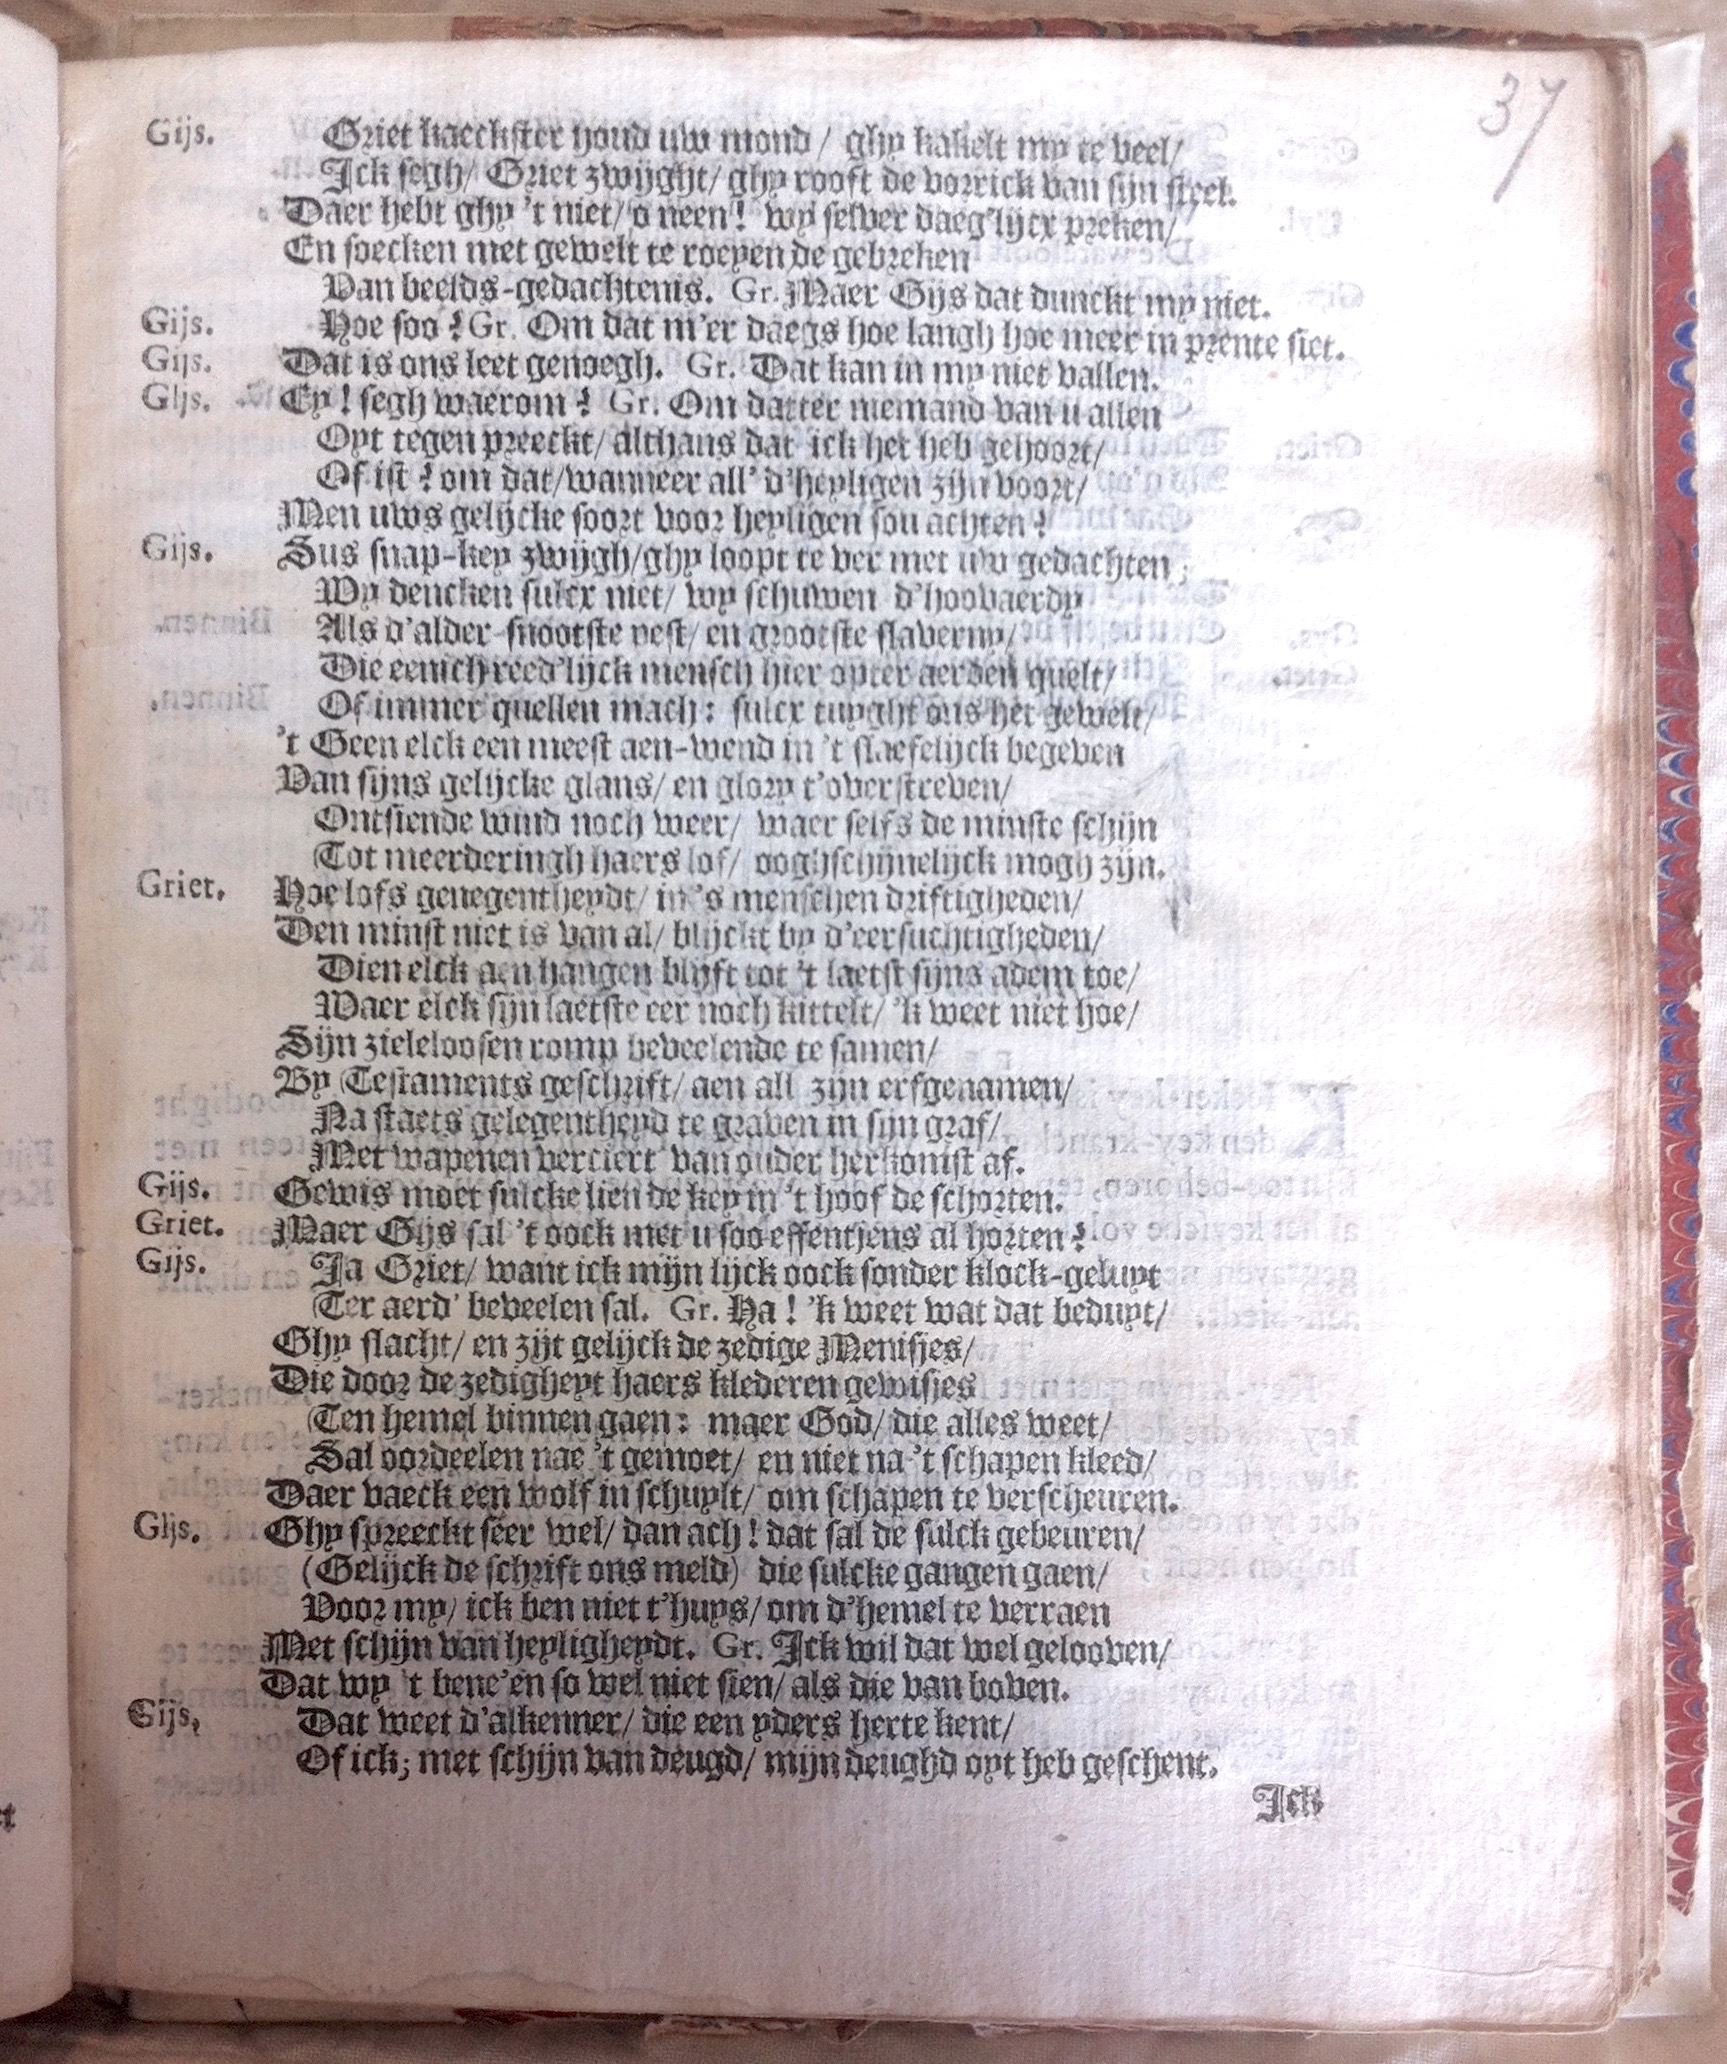 37
Gijs. Griet kaeckster houd uw mond / ghy kakelt my te veel/
Ick segh/ Griet zwijght/ ghy rooft de vorrick van sijn steel.
Daer hebt ghy 't niet/ o neen! wy selver daeg'lijcx preken/
En soecken met gewelt te roeyen de gebreken
Van beelds-gedachtenis. Gr. Maer Gijs dat dunckt my niet.
Gijs. Hoe soo? Gr. Om dat m'er daegs hoe langh hoe meer in prente siet.
Gijs. Dat is ons leet genoegh. Gr. Dat kan in my niet vallen.
Gijs. Ey! segh waerom? Gr. Om datter niemand van u allen
Oyt tegen preeckt/ althans dat ick het heb gehoort/
Of ist? om dat/ wanneer all' d'heyligen zijn voort/
Men uws gelijcke soort voor heyligen sou achten?
Gijs. Sus snap-key zwijgh/ ghy loopt te ver met uw gedachten;
Wy dencken sulcx niet/ wy schuwen d'hoovaerdy
Als d'alder-snootste pest/ en grootste slaverny/
Die eenich reed'lijck mensch hier opter aerden quelt/
Of immer quellen mach: sulcx tuyght ons het gewelt/
't Geen elck een meest aen-wend in 't slaefelijck begeven
Van sijns gelijcke glans/ en glory t'overstreven/
Ontsiende wind noch weer/ waer selfs de minste schijn
Tot meerderingh haers lof/ ooghschijnelijck mogh zijn.
Griet. Hoe lofs genegentheydt/ in 's menschen driftigheden/
Den minst niet is van al/ blijckt by d'eersuchtigheden/
Dien elck aen hangen blijft tot 't laetst sijns adem toe/
Waer elck sijn laetste eer noch kittelt/ 'k weet niet hoe/
Sijn zieleloosen romp beveelende te samen/
By Testaments geschrift/ aen all zijn erfgenamen/
Na staets gelegentheyd te graven in sijn graf/
Met wapenen verciert van ouder herkomst af.
Gijs. Gewis moet sulcke lien de key in 't hoof de schorten.
Griet. Maer Gijs sal 't oock met u soo effentjens al horten?
Gijs. Ja Griet/ want ick mijn lijck oock sonder klock-geluyt
Ter aerd' beveelen sal. Gr. Ha! 'k weet wat dat beduyt/
Ghy slacht/ en zijt gelijck de zedige Menisjes/
Die door de zedigheyt haers klederen gewisjes
Ten hemel binnen gaen: maer God/ die alles weet/
Sal oordeelen nae 't gemoet/ en niet na 't schapen kleed/
Daer vaeck een wolf in schuylt/ om schapen te verscheuren.
Gijs. Ghy spreeckt seer wel/ dan ach! dat sal de sulck gebeuren/
(Gelijck de schrift ons meld) die sulcke gangen gaen/
Voor my/ ick ben niet t'huys/ om d'hemel te verraen
Met schijn van heyligheydt. Gr. Ick wil dat wel gelooven/
Dat wy 't bene'en so wel niet sien/ als die van boven.
Gijs. Dat weet d'alkenner/ die een yders herte kent/
Of ick; met schijn van deugd/ mijn deughd oyt heb geschent.
Ick